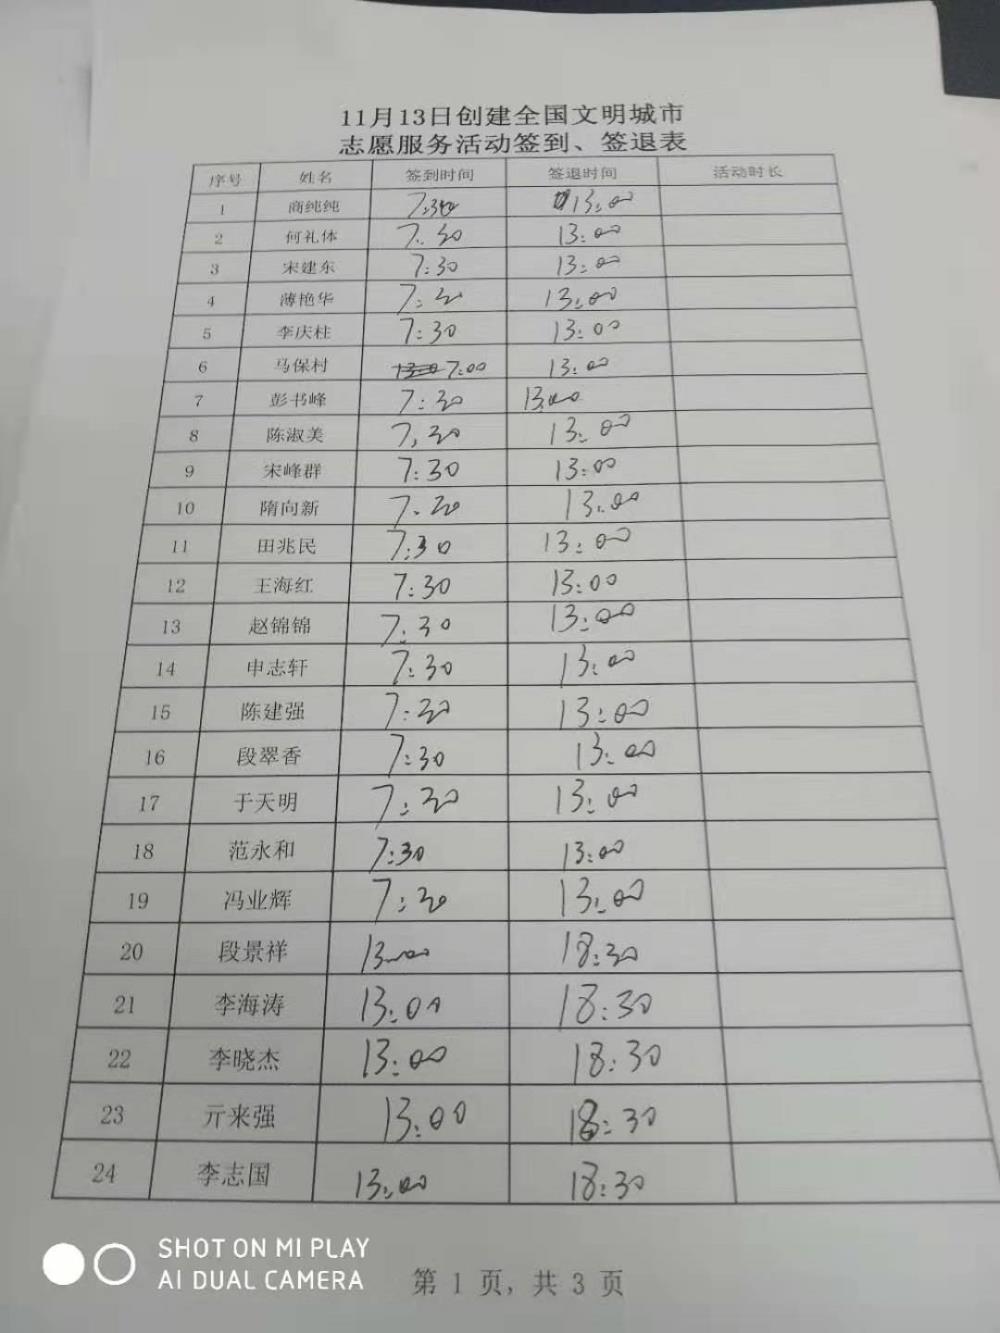 11月13日创建全国文明城市
志愿服务活动签到、签退表
序号 姓名 签到时间 签退时间 活动时长
1 商纯纯 7:30 13:00
2 何礼体 7:30 13:00
3 宋建东 7:30 13:00
4 薄艳华 7:30 13:00
5 李庆柱 7:30 13:00
6 马保村 7:00 13:00
7 彭书峰 7:30 13:00
8 陈淑美 7:30 13:00
9 宋峰群 7:30 13:00
10 隋向新 7:30 13:00
11 田兆民 7:30 13:00
12 王海红 7:30 13:00
13 赵锦锦 7:30 13:00
14 申志轩 7:30 13:00
15 陈建强 7:30 13:00
16 段翠香 7:30 13:00
17 于天明 7:30 13:00
18 范永和 7:30 13:00
19 冯业辉 7:30 13:00
20 段景祥 13:00 18:30
21 李海涛 13:00 18:30
22 李晓杰 13:00 18:30
23 亓来强 13:00 18:30
24 李志国 13:00 18:30
SHOT ON MI PLAY
AI DUAL CAMERA
第 1 页，共 3 页